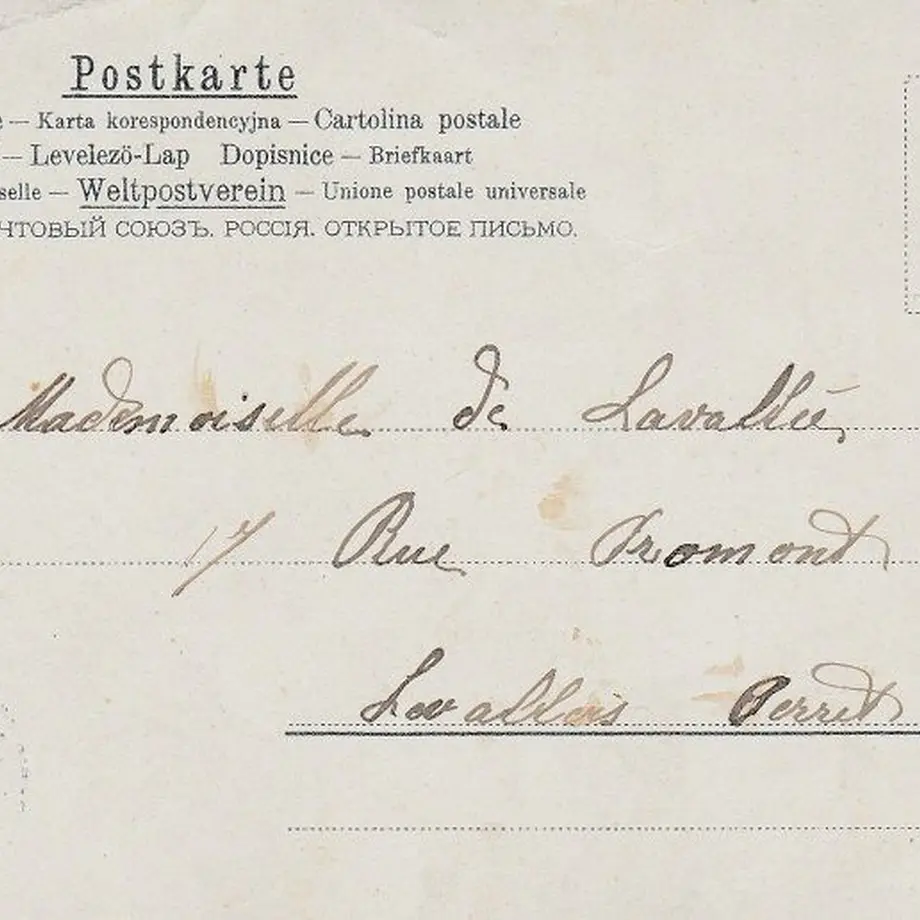 Postkarte
e — Karta korespondencyjna — Cartolina postale
— Levelezö-Lap Dopisnice — Briefkaart
selle — Weltpostverein — Unione postale universale
ЧТОВЫЙ СОЮЗЪ. РОССІЯ. ОТКРЫТОЕ ПИСЬМО.
Mademoiselle de Lavallée
17 Rue Fromont
Levallois Perret